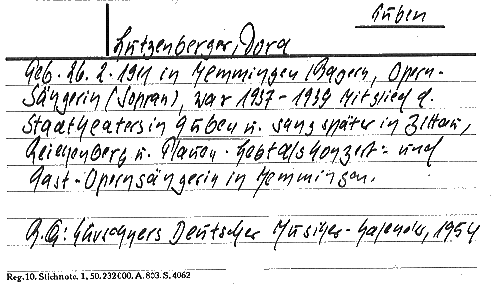 Guben
Lutzenberger, Dora
Geb. 26. 2. 1911 in Memmingen/Bayern, Opern-
Sängerin (Sopran), war 1937-1939 Mitglied d.
Stadttheaters in Guben u. sang später in Zittau,
Reichenberg u. Plauen. Lebt als Konzert- und
Gast-Opernsängerin in Memmingen.
B.Q: Kürschners Deutscher Musiker-Kalender, 1954
Reg. 10. Stichnote. 1, 50. 232000. A. 803. S. 4062